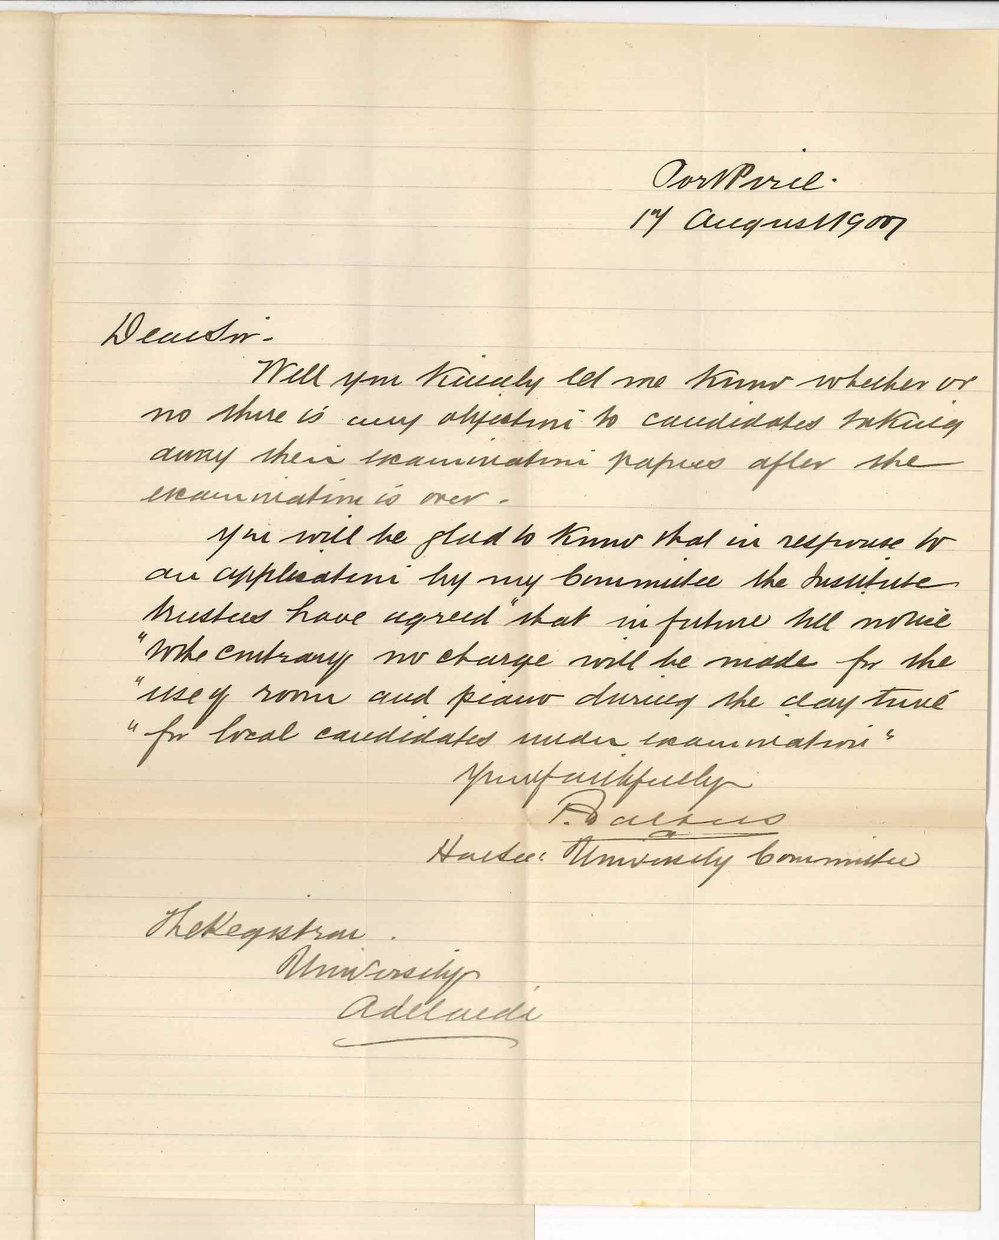 Port Pirie.
17 August 1900
Dear Sir.
Will you kindly let me know whether or
no there is any objection to candidates taking
away their examination papers after the
examination is over.
You will be glad to know that in response to
an application by my Committee the Institute
trustees have agreed "that in future till notice
"to the contrary no charge will be made for the
"use of room and piano during the day time
"for local candidates under examination"
Yours faithfully
Hon Sec: University Committee
The Registrar.
University
Adelaide